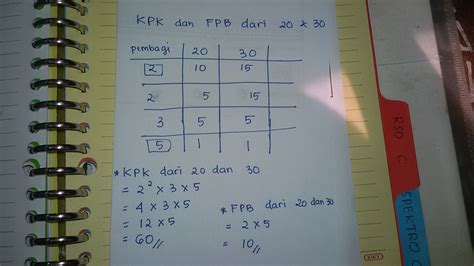 KPK dan FPB dari 20 & 30
pembagi 20 30
2 10 15
2 5 15
3 5 5
5 1 1
* KPK dari 20 dan 30
= 2² x 3 x 5
= 4 x 3 x 5
= 12 x 5
= 60 //
* FPB dari 20 dan 30
= 2 x 5
= 10 //
RSD C
SPEKTRO C